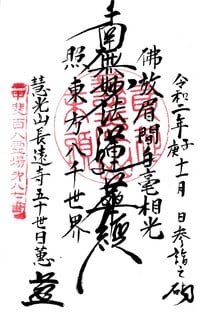 令和二年庚子十一月 日参詣之砌
佛放眉間白毫相光
南無妙法蓮華経
照東方八千世界
慧光山長遠寺五十世日
甲斐百八霊場第八十